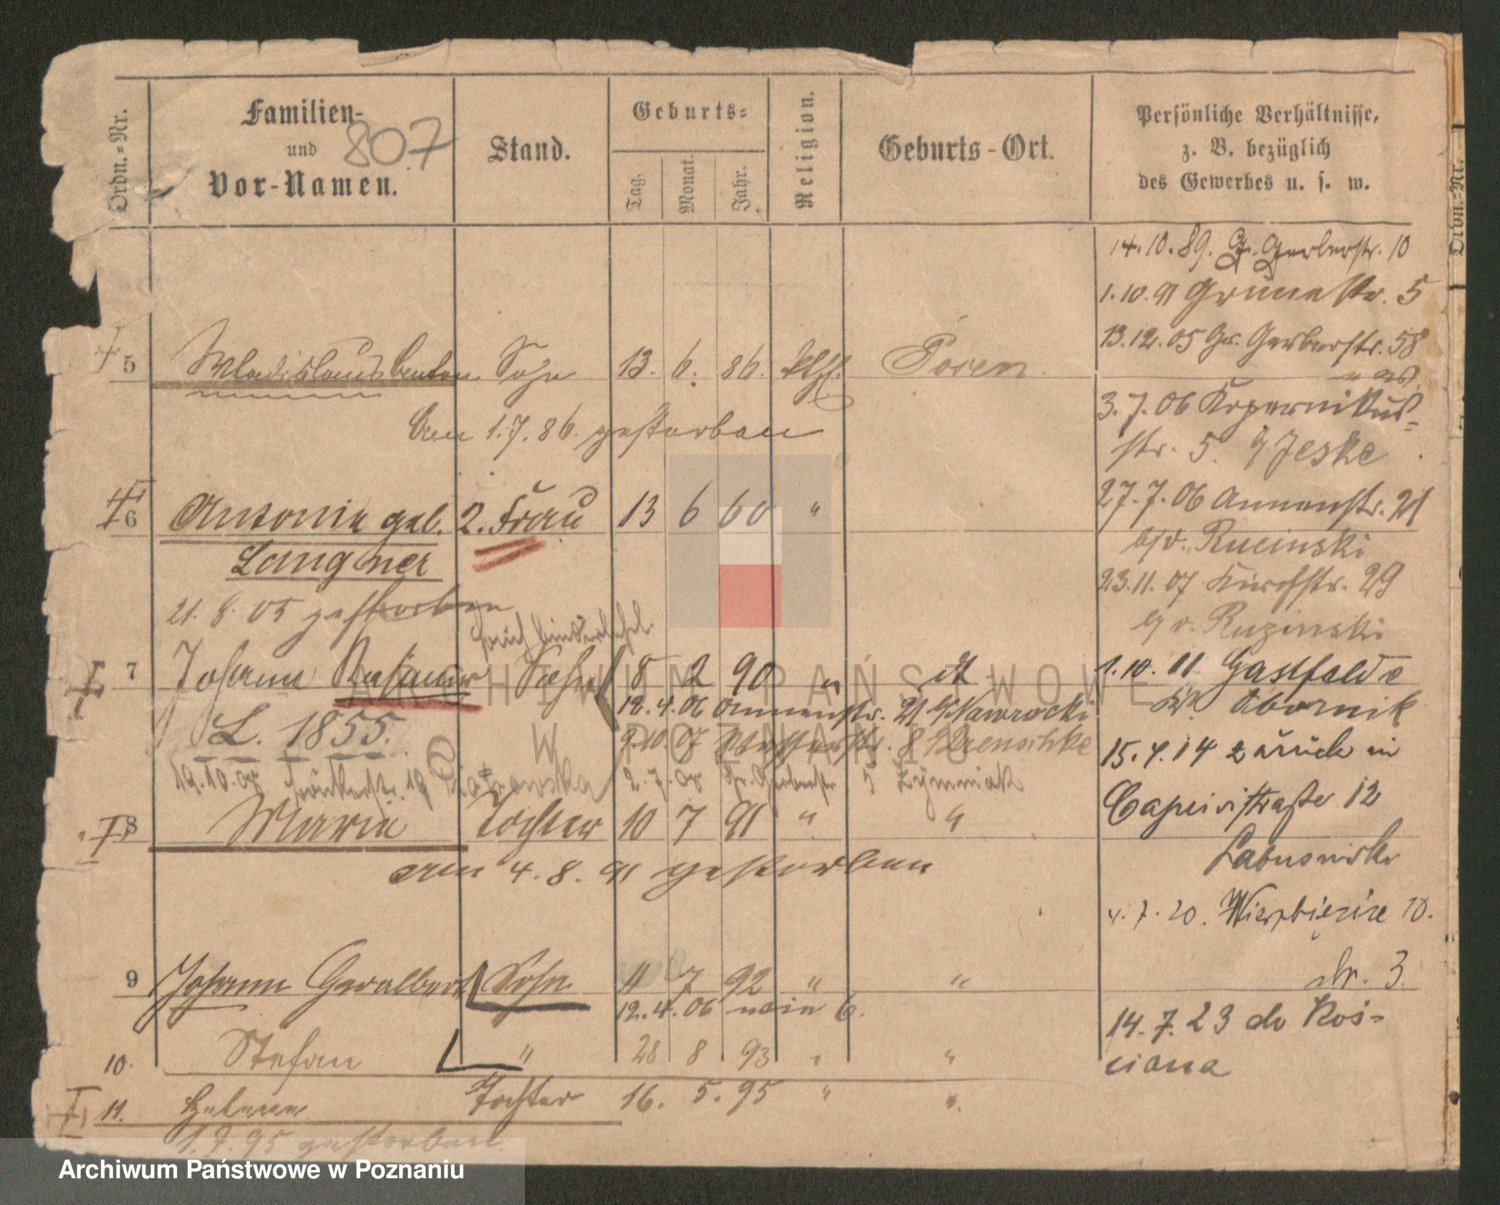 Ordn.-Nr.
Familien-
und
Vor-Namen.
807
Stand.
Geburts-
Tag.
Monat.
Jahr.
Religion.
Geburts-Ort.
Persönliche Verhältnisse,
z. B. bezüglich
des Gewerbes u. s. w.
Ordn.-Nr.
14.10.89. Gr. Gerberstr. 10
1.10.91 Grünestr. 5
13.12.05 Gr. Gerberstr. 58
5 Wladislaus Sohn 13. 6. 86. kth. Posen
am 1.7.86. gestorben
3.7.06 Kopernikus-
str. 5. Jeske
6 Antonie geb. 2. Frau 13 6 60 "
Langner
27.7.06 Annenstr. 21
b/v. Rucinski
21.8.05 gestorben
23.11.07 Kirchstr. 29
Ruzinski
7 Johann 8 2 90 "
1.10.11 Gastfelde
Kr. Obornik
12.4.06 Annenstr. 21 Nawrocki
L. 1855.
9.10.07 8
15.4.14 zurück in
19.10.08 19
2.7.08 Gr. Gerberstr. Zymniak
Capristraße 12
8 Maria Tochter 10 7 91 " "
am 4.8.91 gestorben
4.7.20. Wierzbięcice 18.
9 Johann Sohn 11 7 92 " "
Nr. 3.
12.4.06 nein 6.
14.7.23 do Koś-
ciana
10. Stefan " 28 8 93 " "
11. Helene Tochter 16. 5. 95 " "
1.7.95 gestorben
ARCHIWUM PAŃSTWOWE
W POZNANIU
Archiwum Państwowe w Poznaniu